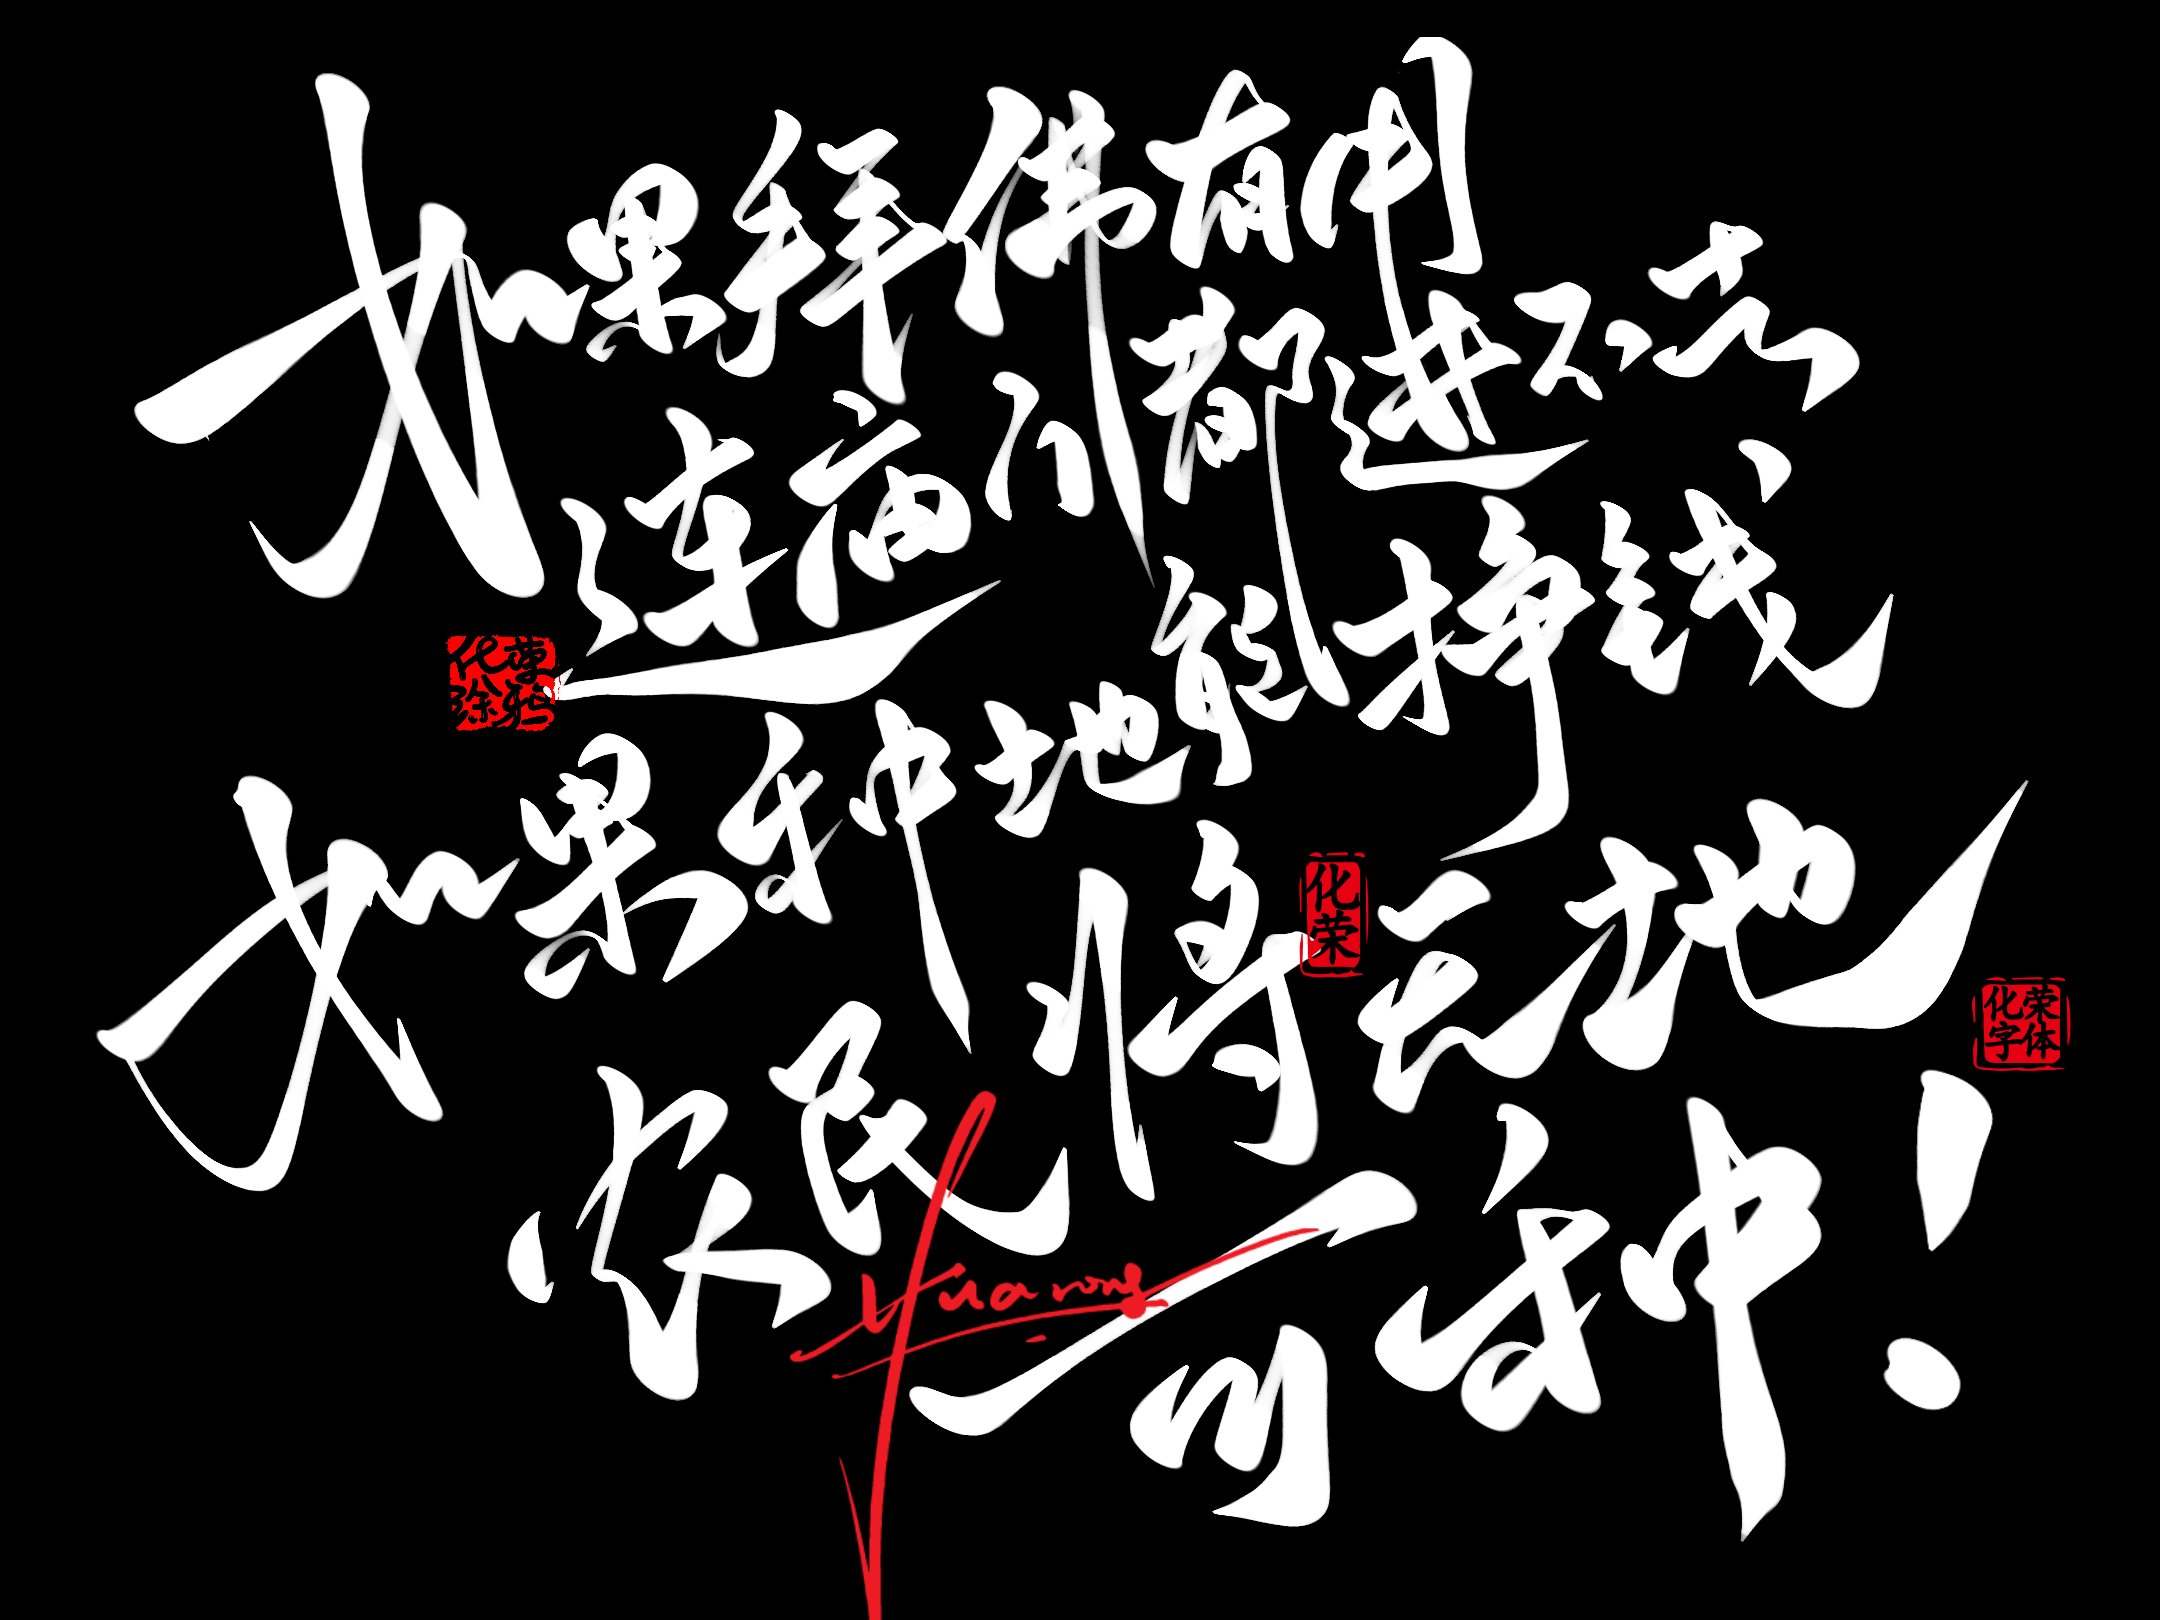 如果拜佛有用
连庙门都进不去
如果种地能挣钱
农民将无地可种！
化荣
化荣字体
Huarong